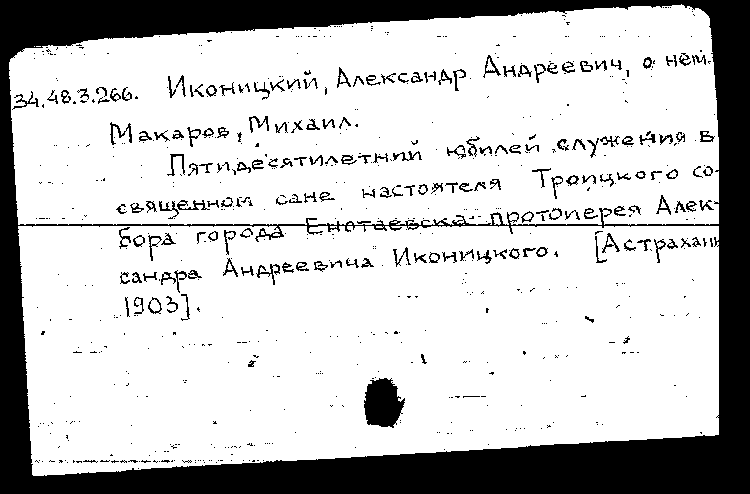 34.48.3.266. Иконицкий, Александр Андреевич, о нем.
Макаров, Михаил.
Пятидесятилетний юбилей служения в
священном сане настоятеля Троицкого со-
бора города Енотаевска протоиерея Алек-
сандра Андреевича Иконицкого. [Астрахань
1903].